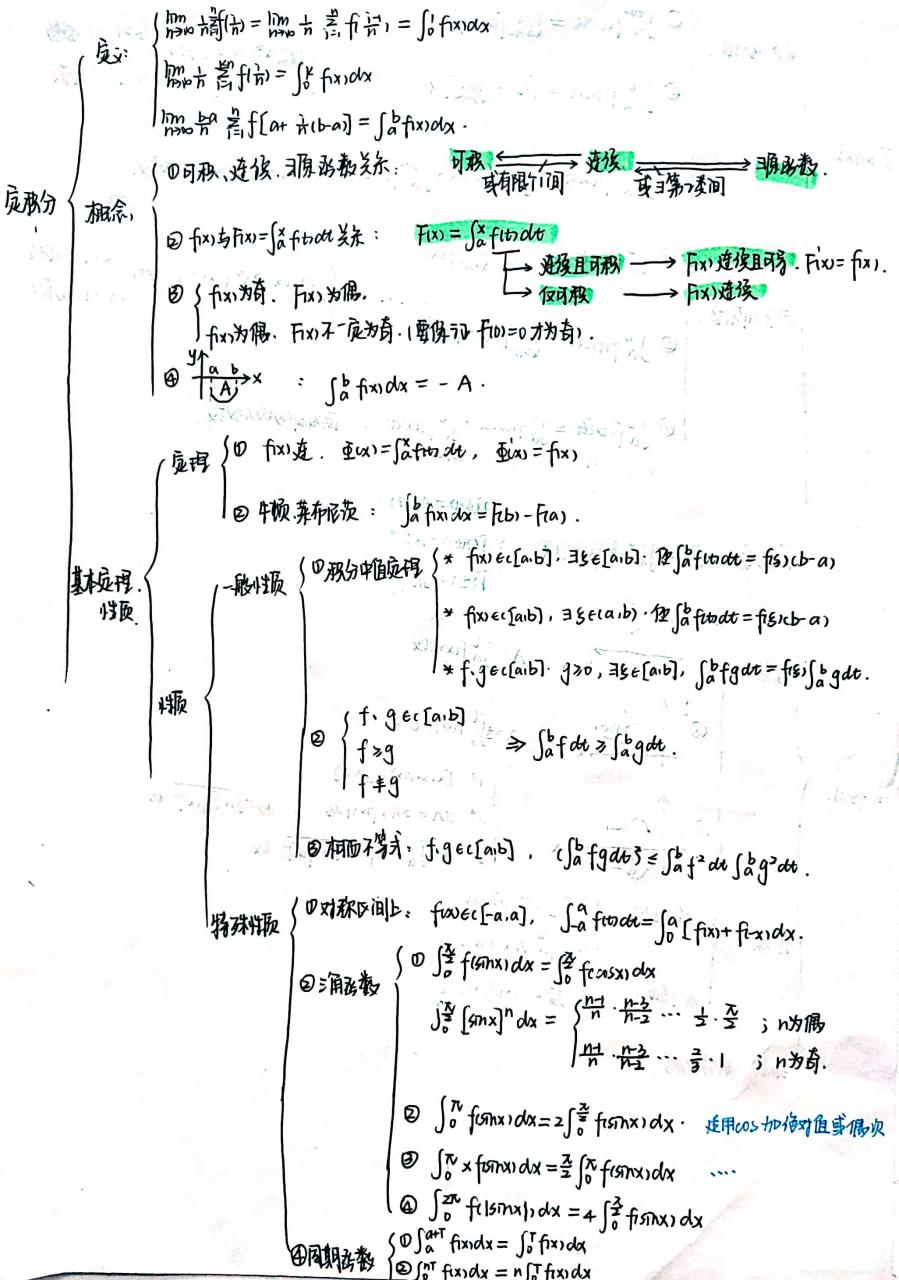 定积分
定义:
lim n→∞ 1/n Σ i=1 n f(i/n) = lim n→∞ 1/n Σ i=1 n f(i-1/n) = ∫₀¹ f(x)dx
lim n→∞ 1/n Σ i=1 kn f(i/n) = ∫₀ᵏ f(x)dx
lim n→∞ b-a/n Σ i=1 n f[a+ i/n(b-a)] = ∫ₐᵇ f(x)dx.
概念:
①可积、连续、∃原函数关系: 可积 连续 ∃原函数.
或有限个I间 或∃第二类间
② f(x)与F(x)=∫ₐˣ f(t)dt关系: F(x)=∫ₐˣ f(t)dt
连续且可积 → F(x)连续且可导. F'(x)=f(x).
仅可积 → F(x)连续
③ f(x)为奇. F(x)为偶.
f(x)为偶. F(x)不一定为奇.(要保证F(0)=0才为奇).
④ y a b x A : ∫ₐᵇ f(x)dx = -A.
基本定理.性质.
定理
① f(x)连. Φ(x)=∫ₐˣ f(t)dt, Φ'(x)=f(x)
② 牛顿.莱布尼茨: ∫ₐᵇ f(x)dx = F(b)-F(a).
性质
一般性质
①积分中值定理
* f(x)∈c[a,b], ∃ξ∈[a,b]. 使∫ₐᵇ f(t)dt = f(ξ)(b-a)
* f(x)∈c[a,b], ∃ξ∈(a,b). 使∫ₐᵇ f(t)dt = f(ξ)(b-a)
* f.g∈c[a,b]. g≥0, ∃ξ∈[a,b], ∫ₐᵇ fgdt = f(ξ)∫ₐᵇ gdt.
②
f、g∈c[a,b]
f≥g ⇒ ∫ₐᵇ fdt ≥ ∫ₐᵇ gdt.
f≢g
③柯西不等式: f.g∈c[a,b], (∫ₐᵇ fgdt)² ≤ ∫ₐᵇ f²dt ∫ₐᵇ g²dt.
特殊性质
①对称区间上: f(x)∈c[-a,a], ∫₋ₐᵃ f(t)dt = ∫₀ᵃ [f(x)+f(-x)dx.
②三角函数
① ∫₀^(π/2) f(sinx)dx = ∫₀^(π/2) f(cosx)dx
∫₀^(π/2) [sinx]ⁿ dx = n-1/n · n-3/n-2 ··· 1/2 · π/2 ; n为偶
n-1/n · n-3/n-2 ··· 2/3 · 1 ; n为奇.
② ∫₀^π f(sinx)dx = 2∫₀^(π/2) f(sinx)dx. 适用cos加绝对值或偶次
③ ∫₀^π xf(sinx)dx = π/2 ∫₀^π f(sinx)dx ····
④ ∫₀^(2π) f(|sinx|)dx = 4∫₀^(π/2) f(sinx)dx
④周期函数
① ∫ₐ^(a+T) f(x)dx = ∫₀^T f(x)dx
② ∫₀^(nT) f(x)dx = n∫₀^T f(x)dx